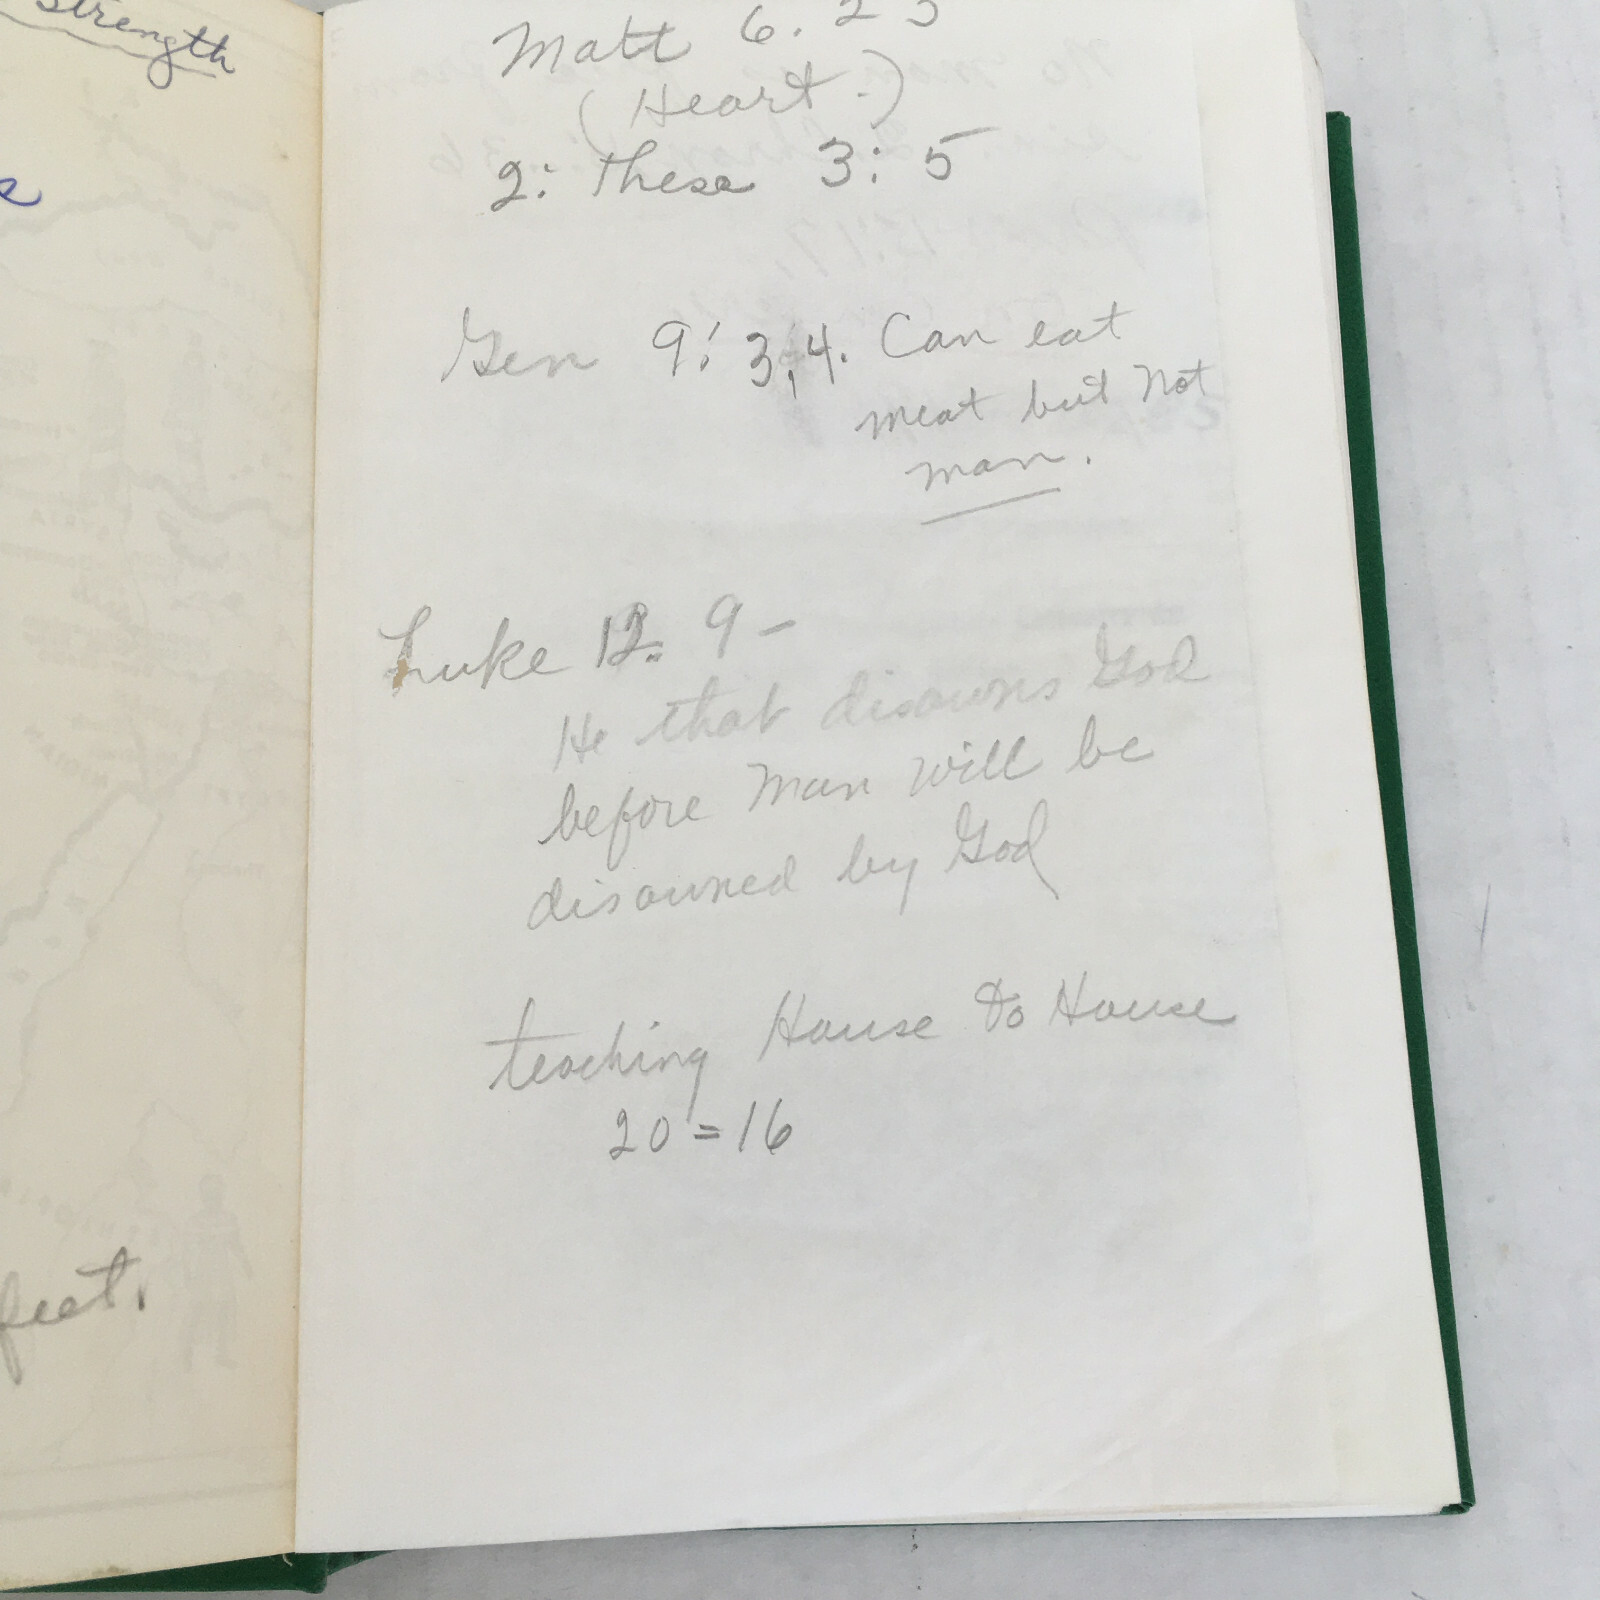 strength
feet.
Matt 6. 25
(Heart.)
2: These 3: 5
Gen 9: 3,4. Can eat
meat but not
man.
Luke 12. 9 -
He that disowns God
before man will be
disowned by God
teaching House to House
20 = 16